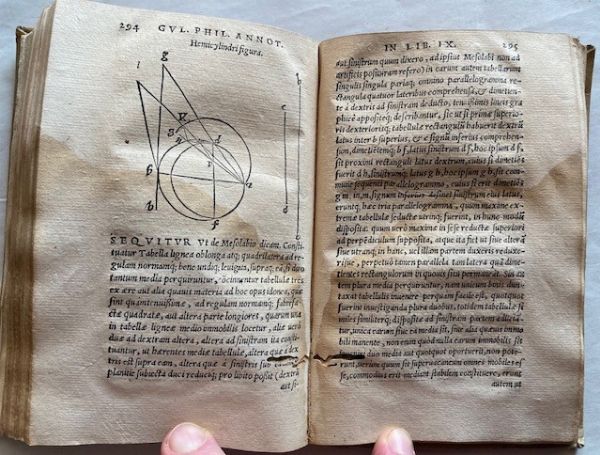 294 GVL. PHIL. ANNOT.
Hemicylindri figura.
SEQVITVR Vt de Mesolabio dicam. Consti-
tuatur Tabella lignea oblonga atq; quadrilatera ad re-
gulam normamq; bene undiq; leuigata, supraq; eã, si duo
tantum media perquiruntur, collocentur tabellæ tres
ex ære aut alia quauis materia ad hoc opus idonea, quæ
sint quàm tenuissimæ, ad regulam normamq; fabrefa-
ctæ quadratæ, aut altera parte longiores, quarum una
in tabellæ ligneæ medio immobilis locetur, alia uerò
duæ ad dextram altera, altera ad sinistram ita consti-
tuantur, ut hærentes mediæ tabellulæ, altera quæ à dex
tris est supra eam, altera quæ à sinistris sub
planitie subiecta duci reducaq; pro libito possit (dextrã
aut si-
IN LIB. IX. 295
aut sinistram quum dixero, ad ipsius Mesolabi non ad
artificis posituram refero) in earum autem tabellarum
singulis singula pariaq; omnino parallelogramma re-
ctangula quatuor lateribus comprehensa, & dimetien-
te à dextris ad sinistram deducto, tenuissimis lineis gra
phicè appositeq; describantur, sic ut si prima superio-
ris exteriorisq; tabellulæ rectanguli habuerit dextrũ
latus inter b superius, & g signũ inferius comprehen-
sum, dimetientemq; b f, latus sinistrum d f, hoc ipsum d f,
sit proximi rectanguli latus dextrum, cuius si dimetiẽs
fuerit d h, sinistrũ, latus g h, hoc ipsum g h, sit com-
mune sequenti parallelogrammo, cuius sit erit dimetiẽs
g m, in mq; signum inferius desinẽs, sinistrum latus
eruntq; hæc tria parallelogramma, quum maxime ex-
tremæ tabellulæ seductæ utrinq; fuerint, in hunc modũ
disposita: quum uerò maxime in sese reductæ superiori
ad perpẽdiculum supposita, atque ita fiet ut siue alterã
siue utranq; in hanc, uel illam partem duxeris reduxe-
risue, perpetuò tamen parallela tam latera quàm dime-
tientes rectangulorum in quouis situ permaneãt. Sin au
tem plura media perquirantur, nam unicum bonis diui-
taxat tabellulis inuenire perquàm facile est, quotquot
fuerint inuestiganda plura duobus, totidem tabellulæ si
miles similiterq; dispositæ ad sinistram partem adiicia-
tur, unica earum siue ea media sit, siue alia quæuis immo
bili manente, non enim quòd nulla earum immobilis sit
duo media aut quotquot oportuerit, non pote-
runt, uerùm quum sic superuacaneum omnes mobiles es
se, commodius erit mediam stabilem constituere, erunt
autem ut